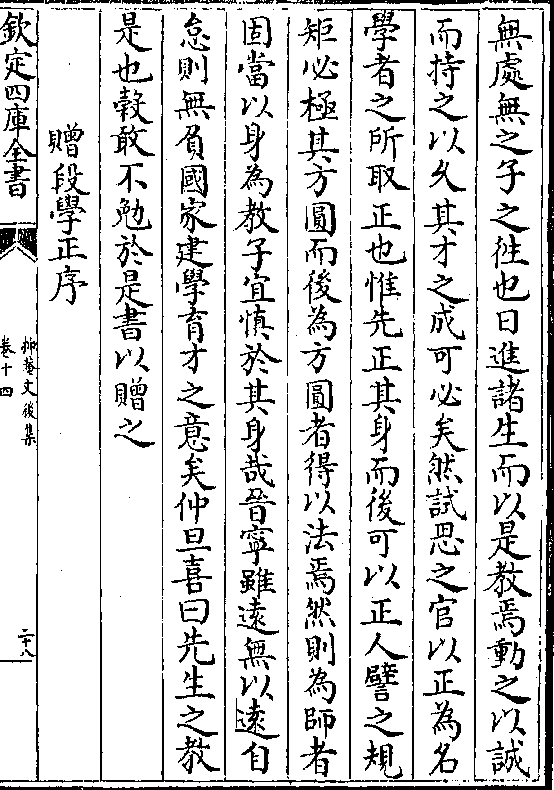 無處無之子之徃也日進諸生而以是教焉動之以誠
而持之以久其才之成可必矣然試思之官以正為名
學者之所取正也惟先正其身而後可以正人譬之規
矩必極其方圓而後為方圓者得以法焉然則為師者
固當以身為教子宜慎於其身哉晉寧雖逺無以逺自
怠則無負國家建學育才之意矣仲旦喜曰先生之教
是也敢不勉於是書以贈之
贈段學正序
欽定四庫全書
抑菴文後集
卷十四
二十八